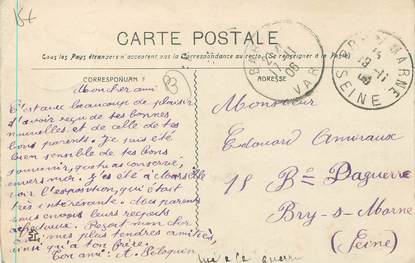 CARTE POSTALE
Tous les Pays étrangers n'acceptent pas la Correspondance au recto (Se renseigner à la Poste)
CORRESPONDANCE
ADRESSE
Mon cher ami
C'est avec beaucoup de plaisir
j'avais reçu de tes bonnes
nouvelles et de celle de tes
bons parents. Je suis été
bien sensible de tes bons
souvenir, que tu as conservé,
envers moi. J'ai été à Marseille
voir l'exposition, qui était
très intéressante. Mes parents
vous envoie leurs respects
affectueux. Reçoit mon cher
mes plus tendres amitiés,
ainsi qu'à ton frère.
Ton ami: A. Peloquin
Monsieur
Edouard Amiraux
18 Bd Daguerre
Bry-s-Marne
(Seine)
VAR
06
BRY S MARNE
SEINE